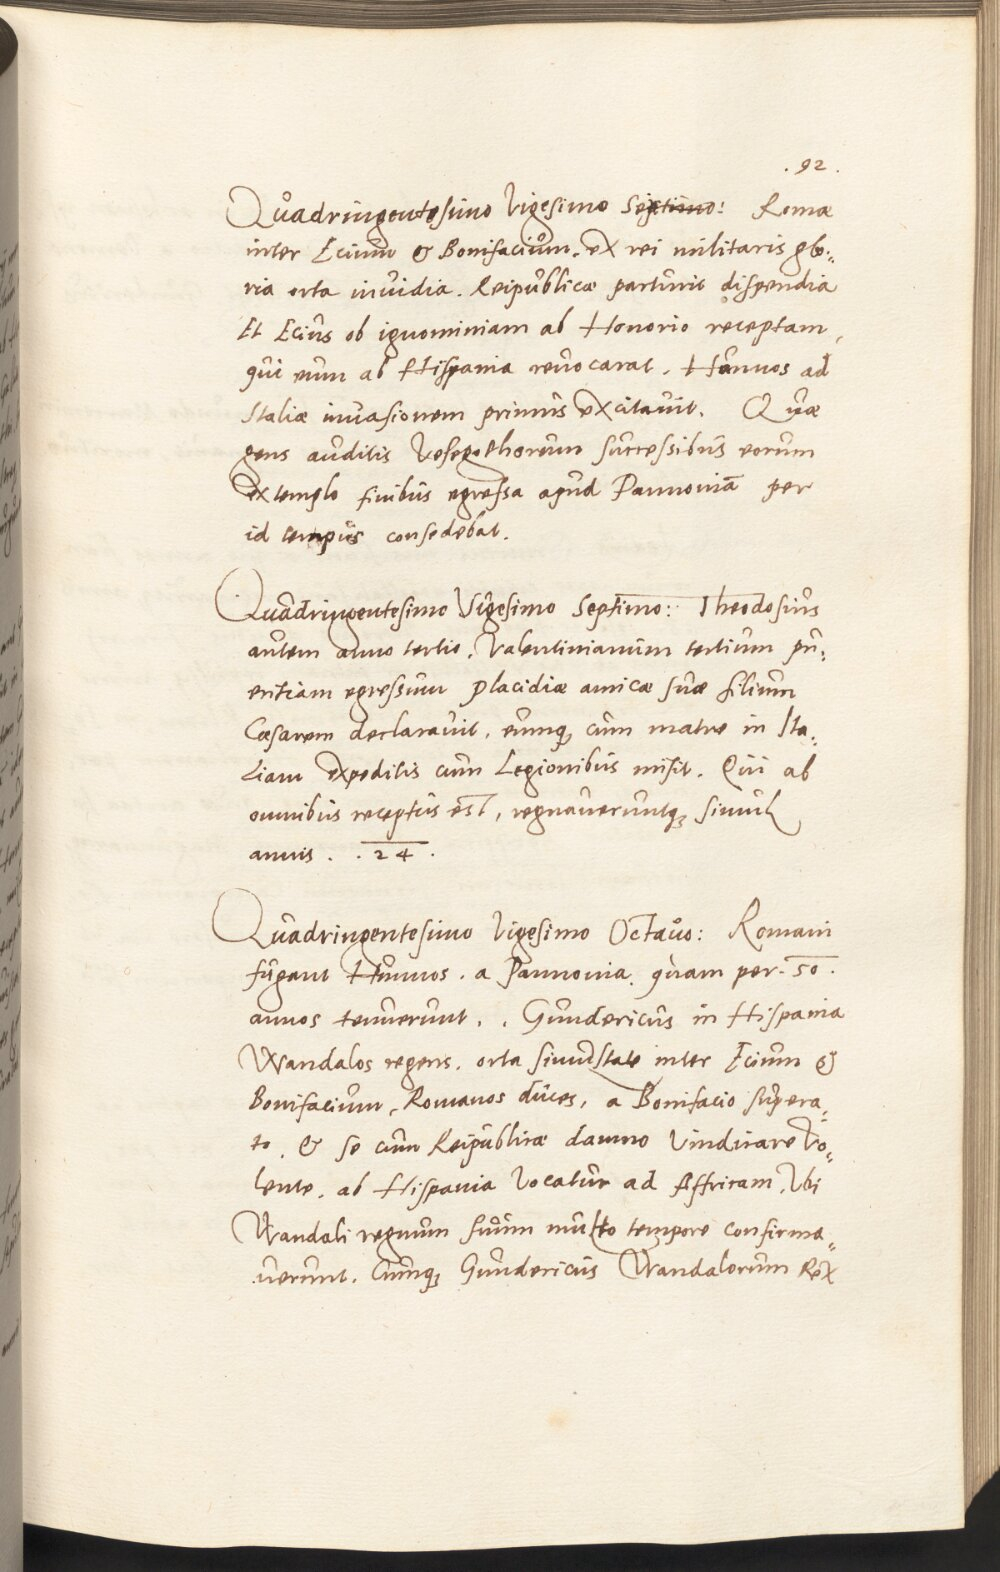 . 92 .
Quadringentesimo Vigesimo Sextimo: Romæ
inter Ecium & Bonifacium, ex rei militaris glo„
ria orta invidia. Reipublicæ parturit dispendia
Et Ecius ob ignominiam ab Honorio receptam,
qui eum ab Hispania revocarat. Hunnos ad
Italiæ invasionem primus excitavit. Quæ
gens auditis Vesegothorum successibus eorum
extemplo finibus egressa apud Pannoniā per
id tempus consedebat.
Quadringentesimo Vigesimo Septimo: Theodosius
autem anno tertio, Valentinianum tertium pu„
entiam egressum Placidiæ amicæ suæ filium
Cæsarem declaravit, eumq, cum matre in Ita„
liam expeditis cum Legionibus misit. Qui ab
omnibus receptus est, regnaveruntq, simul
annis . . 24 .
Quadringentesimo Vigesimo Octavo: Romani
fugant Hunnos . a Pannonia, quam per . 50 .
annos tenuerunt. . Gundericus in Hispania
Wandalos regens, orta simultate inter Ecium &
Bonifacium, Romanos duces, a Bonifacio supera„
to, & se cum Reipublicæ damno Vindicare Vo„
lente, ab Hispania Vocatur ad Affricam, Ubi
Wandali regnum suum multo tempore confirma„
verunt. Cumq, Gundericus Wandalorum Rex